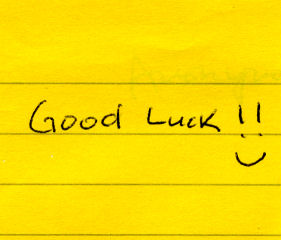 Good Luck !!